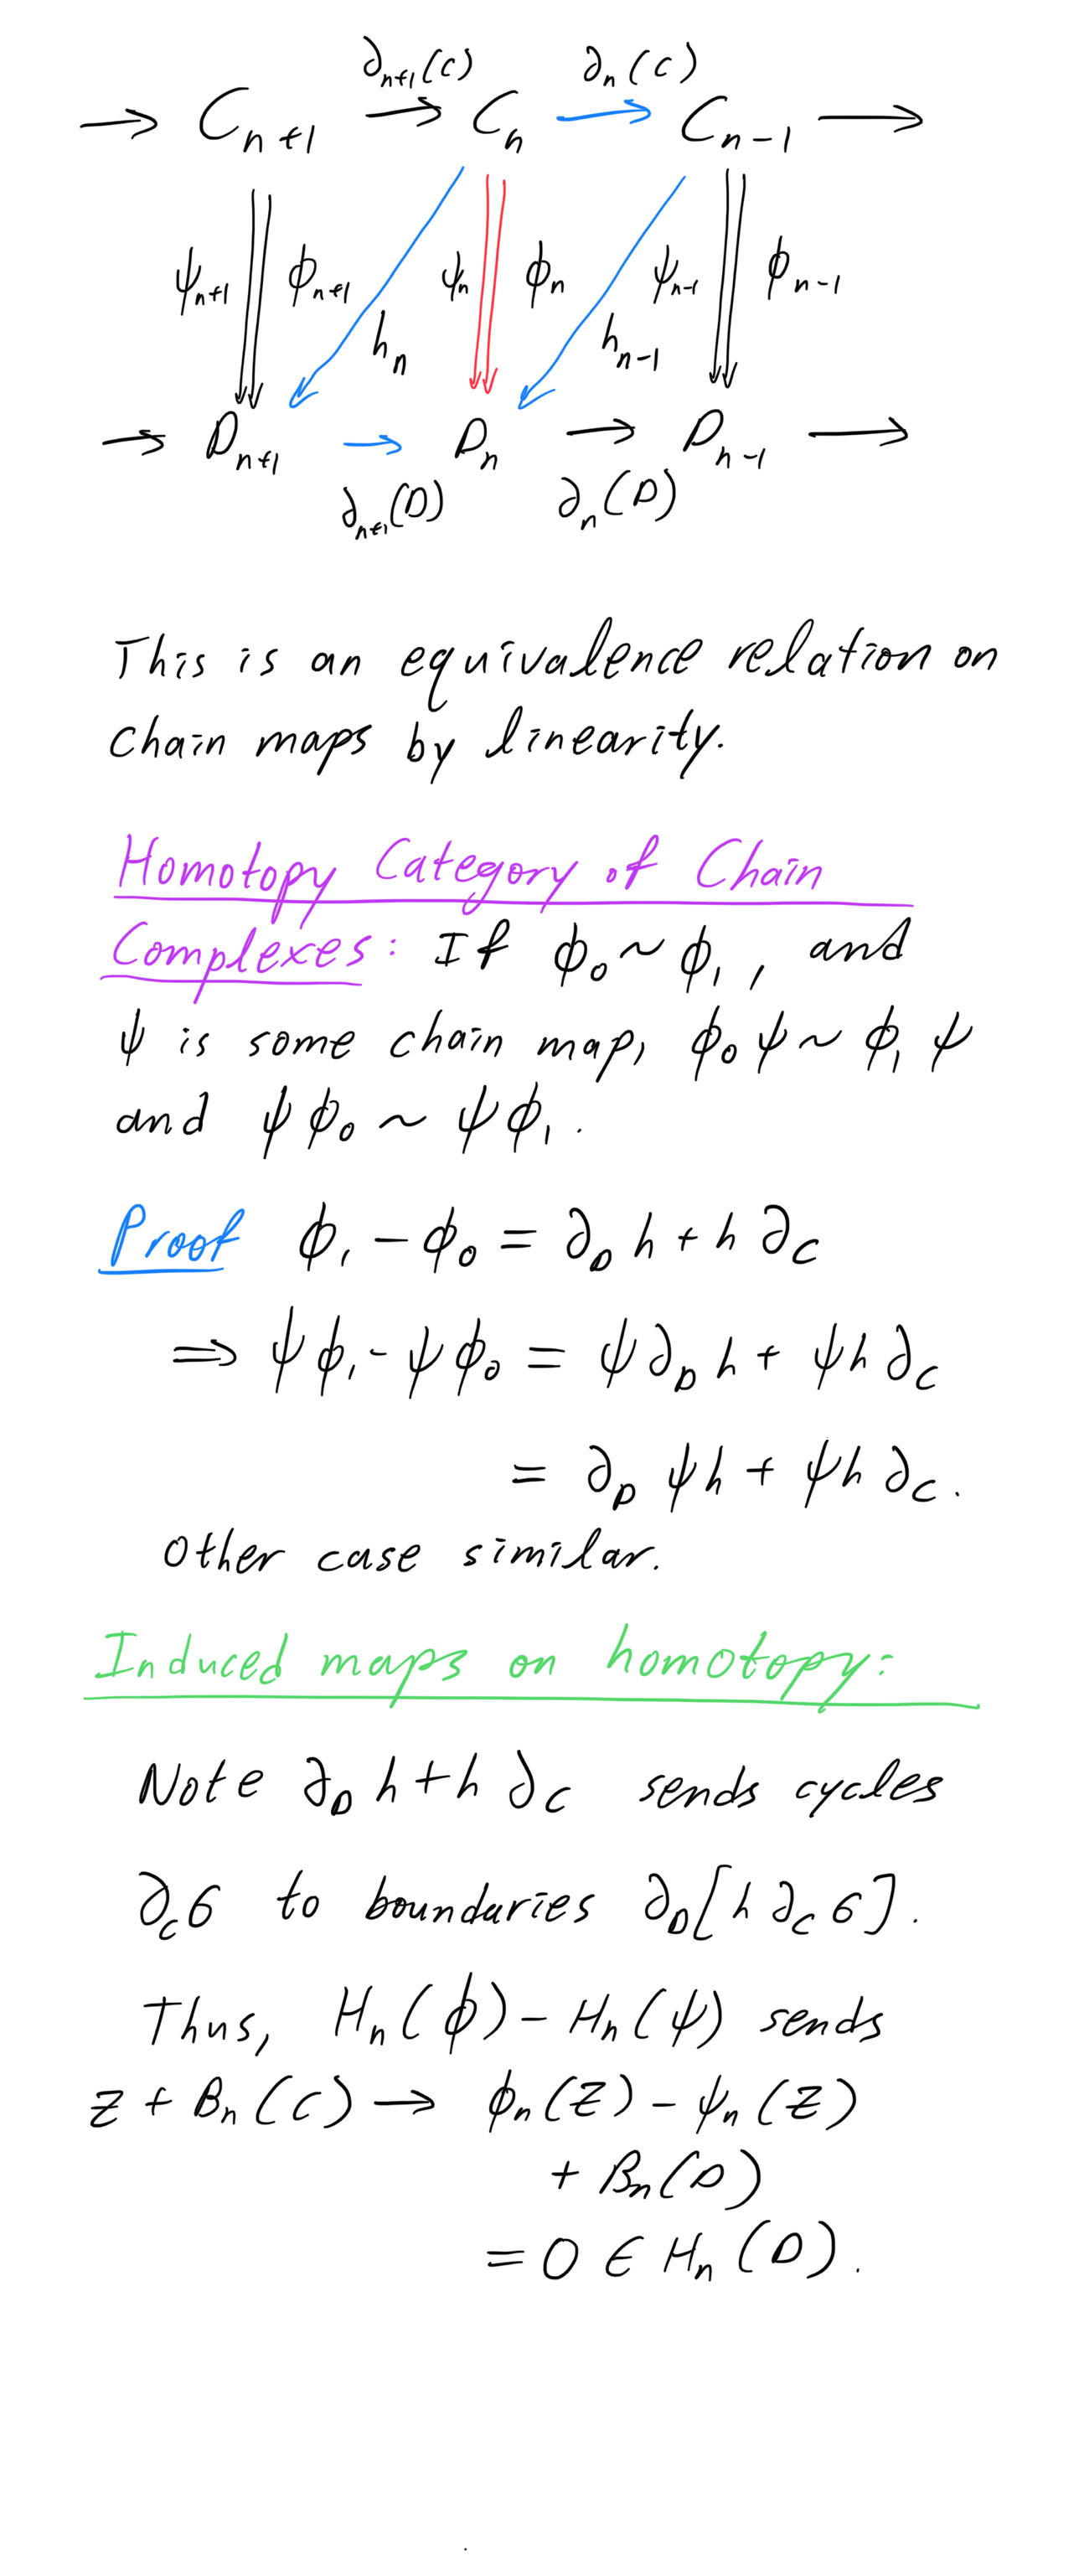 → C_{n+1} →^{∂_{n+1}(C)} C_n →^{∂_n(C)} C_{n-1} →
ψ_{n+1} ϕ_{n+1} h_n ψ_n ϕ_n h_{n-1} ψ_{n-1} ϕ_{n-1}
→ D_{n+1} →_{∂_{n+1}(D)} D_n →_{∂_n(D)} D_{n-1} →
This is an equivalence relation on
chain maps by linearity.
Homotopy Category of Chain
Complexes: If ϕ_0 ~ ϕ_1, and
ψ is some chain map, ϕ_0 ψ ~ ϕ_1 ψ
and ψ ϕ_0 ~ ψ ϕ_1.
Proof ϕ_1 - ϕ_0 = ∂_D h + h ∂_C
⟹ ψ ϕ_1 - ψ ϕ_0 = ψ ∂_D h + ψ h ∂_C
= ∂_D ψ h + ψ h ∂_C.
Other case similar.
Induced maps on homotopy:
Note ∂_D h + h ∂_C sends cycles
∂_C σ to boundaries ∂_D [h ∂_C σ].
Thus, H_n(ϕ) - H_n(ψ) sends
z + B_n(C) → ϕ_n(z) - ψ_n(z)
+ B_n(D)
= 0 ∈ H_n(D).